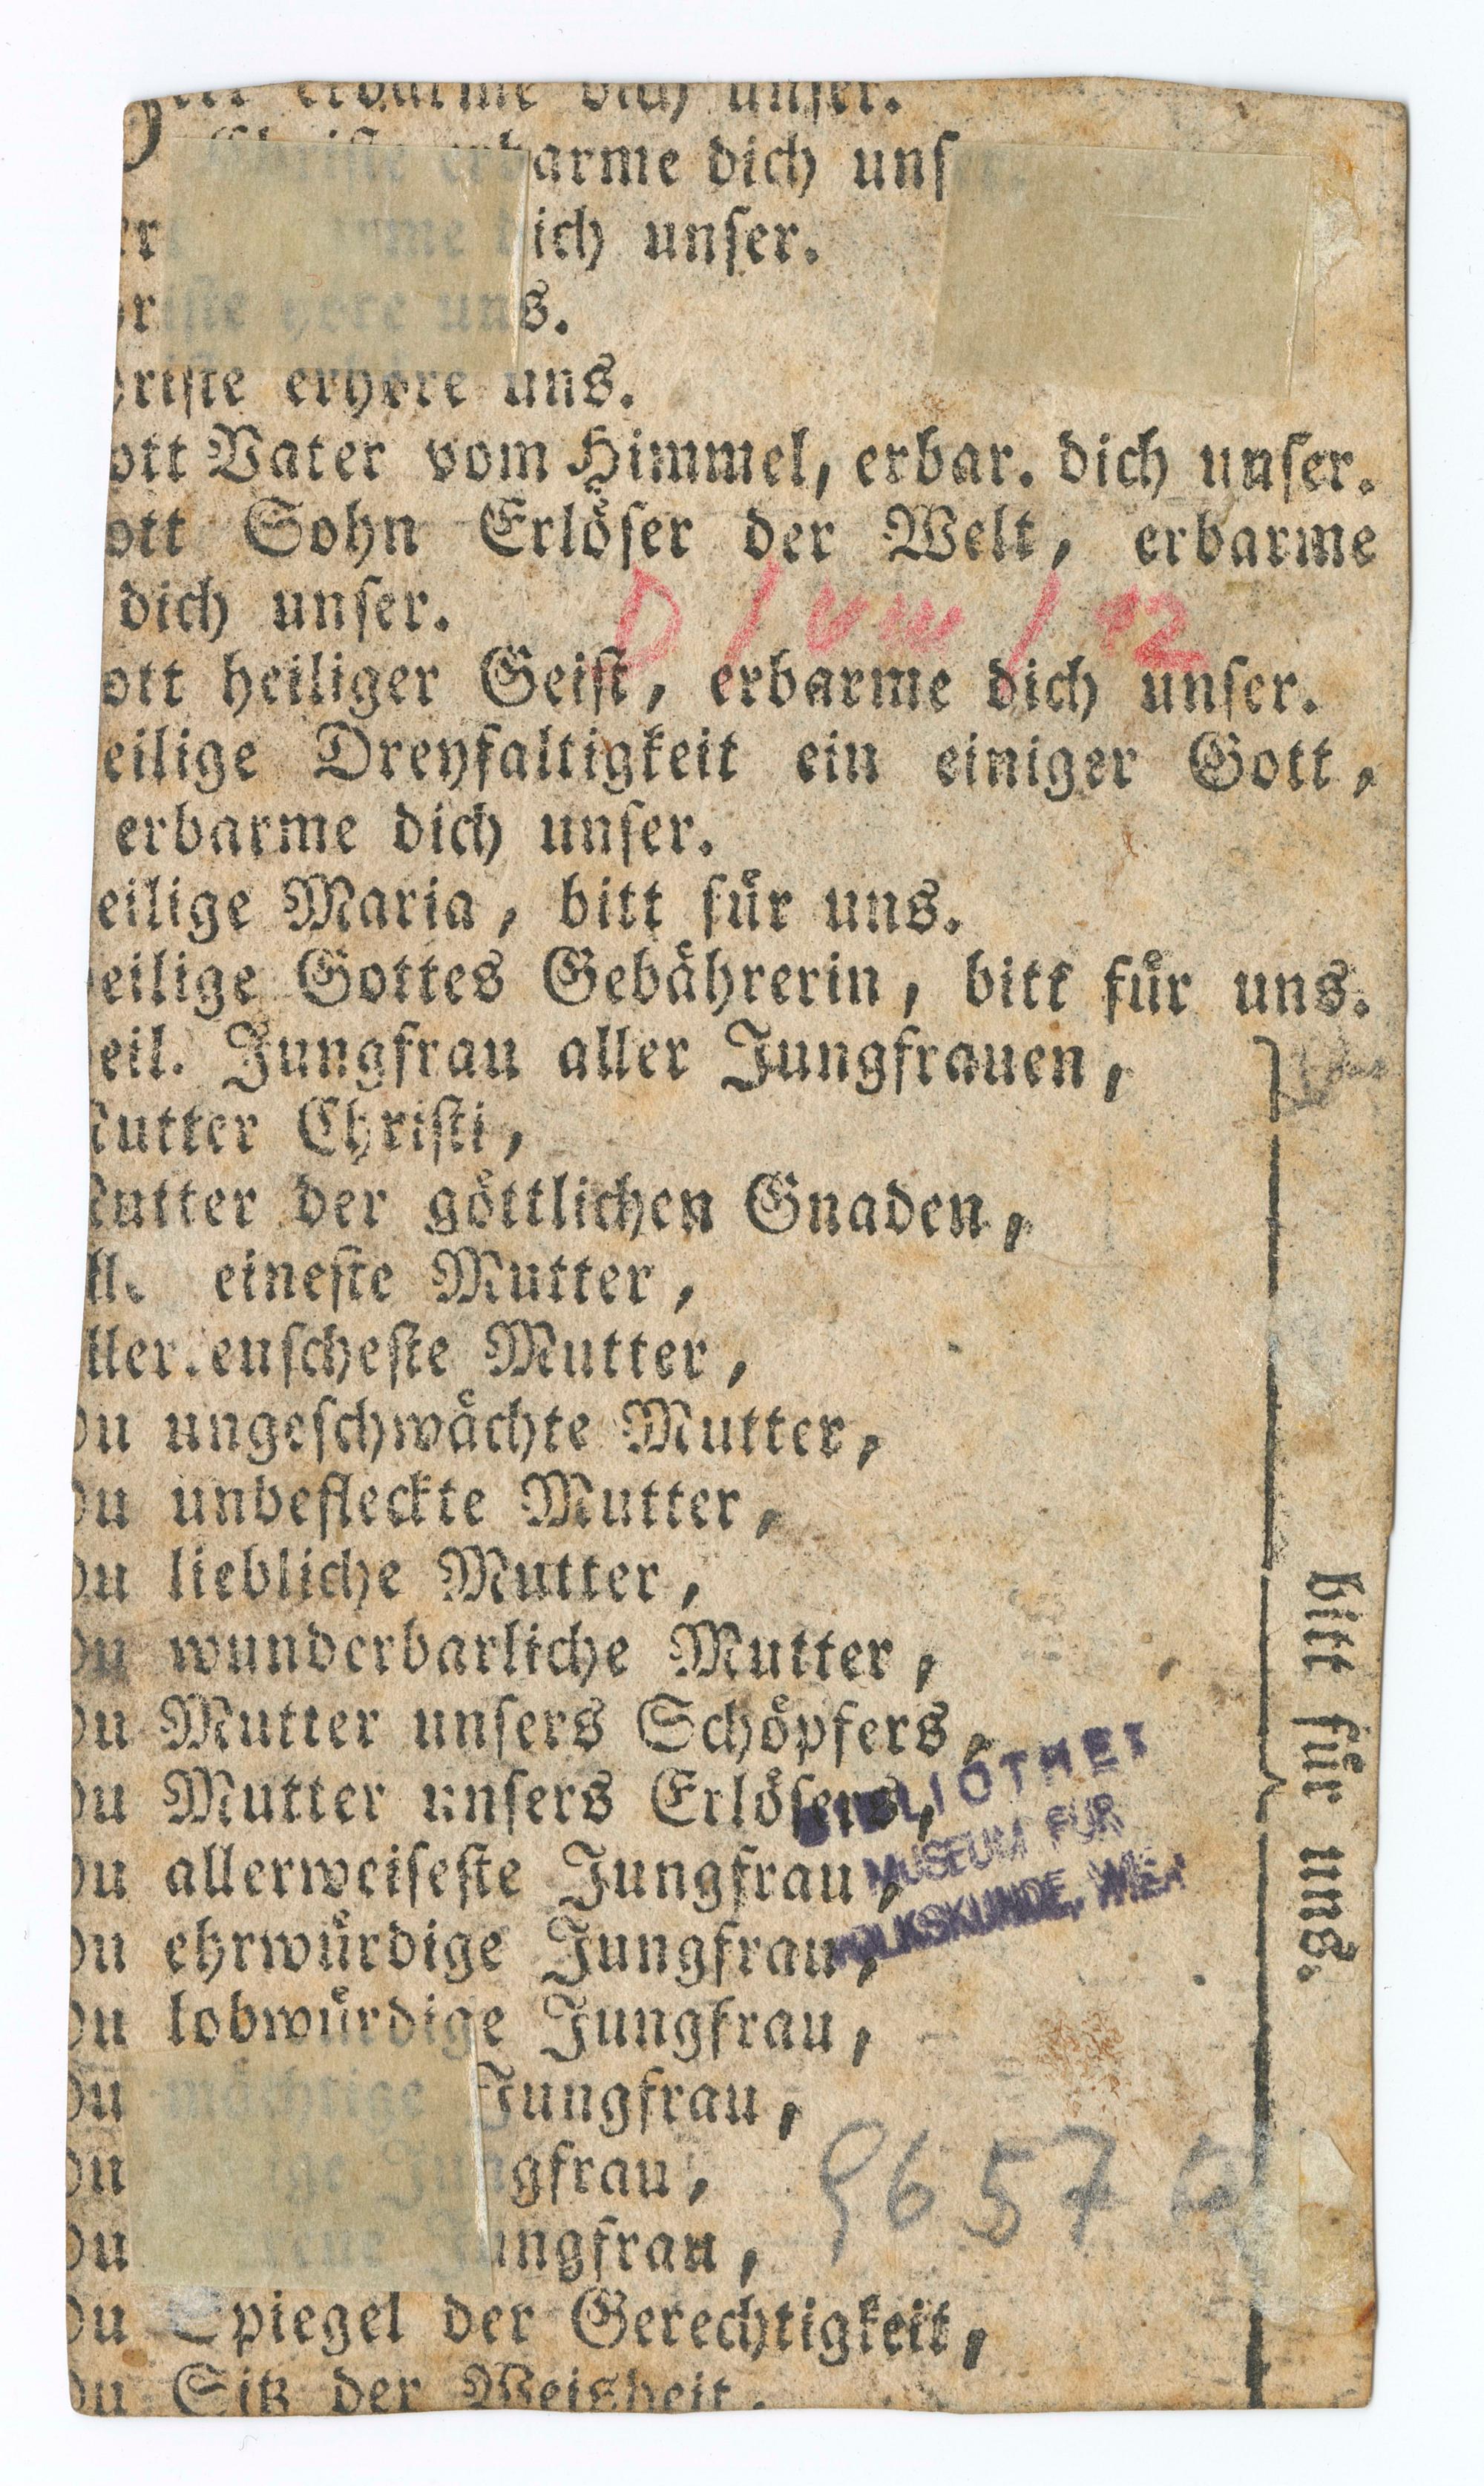 erbarme dich unser.
Christe erbarme dich uns
er arme dich unser.
riste hore uns.
riste erhöre uns.
ott Vater vom Himmel, erbar. dich unser.
ott Sohn Erlöser der Welt, erbarme
dich unser.
D / VIII / 12
ott heiliger Geist, erbarme dich unser.
eilige Dreyfaltigkeit ein einiger Gott,
erbarme dich unser.
eilige Maria, bitt für uns.
eilige Gottes Gebährerin, bitt für uns.
eil. Jungfrau aller Jungfrauen,
utter Christi,
utter der göttlichen Gnaden,
ll. eineste Mutter,
ller.euscheste Mutter,
Du ungeschwächte Mutter,
Du unbefleckte Mutter,
Du liebliche Mutter,
Du wunderbarliche Mutter,
Du Mutter unsers Schöpfers,
Du Mutter unsers Erlösers,
Du allerweiseste Jungfrau,
Du ehrwürdige Jungfrau,
Du lobwürdige Jungfrau,
Du mächtige Jungfrau,
Du ige Jungfrau,
Du reue Jungfrau,
Du Spiegel der Gerechtigkeit,
Du Sitz der Weisheit,
bitt für uns.
BIBLIOTHEK
MUSEUM FÜR
VOLKSKUNDE, WIEN
9657